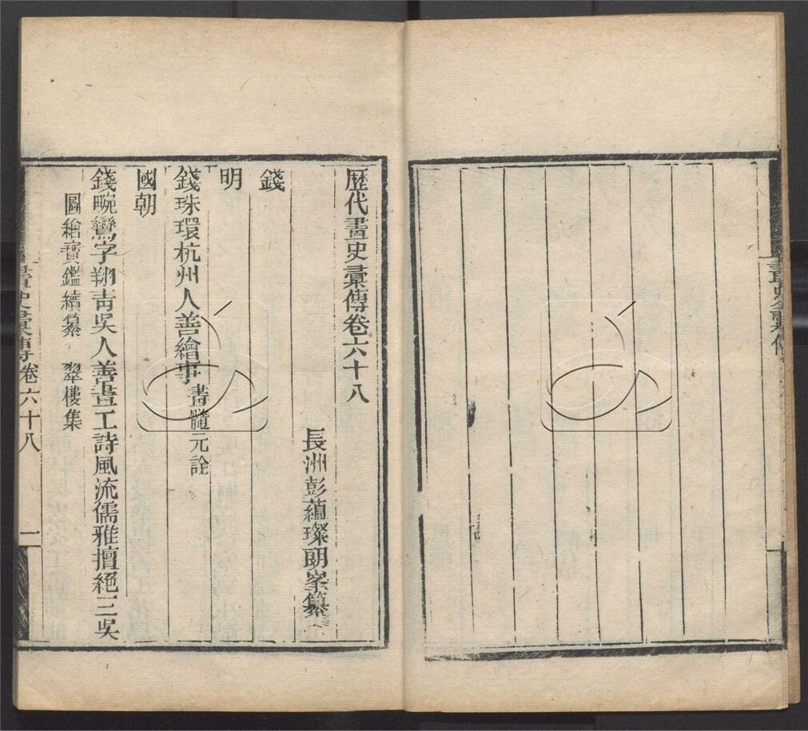 歷代畫史彙傳卷六十八
長洲彭蘊璨朗峯纂
錢
明
錢珠環杭州人善繪事書髓元詮
國朝
錢畹鸞字翔青吳人善畫工詩風流儒雅擅絕三吳
圖繪寶鑑續纂 翠樓集
畫史彙傳卷六十八 一
畫史彙傳